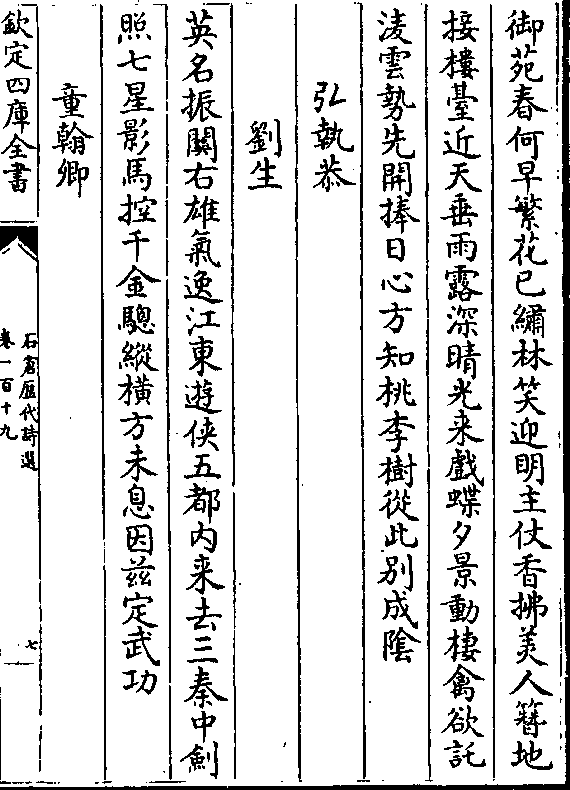 御苑春何早繁花已繡林笑迎明主仗香拂美人簪地
接樓臺近天垂雨露深晴光来戲蝶夕景動棲禽欲託
淩雲勢先開捧日心方知桃李樹從此别成隂
弘執恭
劉生
英名振關右雄氣逸江東遊俠五都内来去三秦中劍
照七星影馬控千金驄縱横方未息因兹定武功
童翰卿
欽定四庫全書
石倉歷代詩選
卷一百十九
七